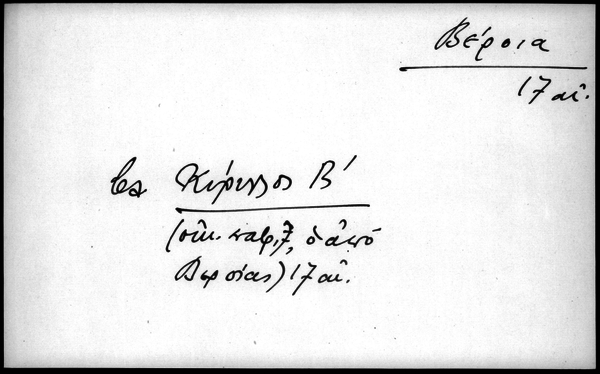 Βέροια
17 αἰ.
βλ Κύριλλος Β΄
(οἰκ. πατρ., ὁ ἀπό
Βεροίας) 17 αἰ.